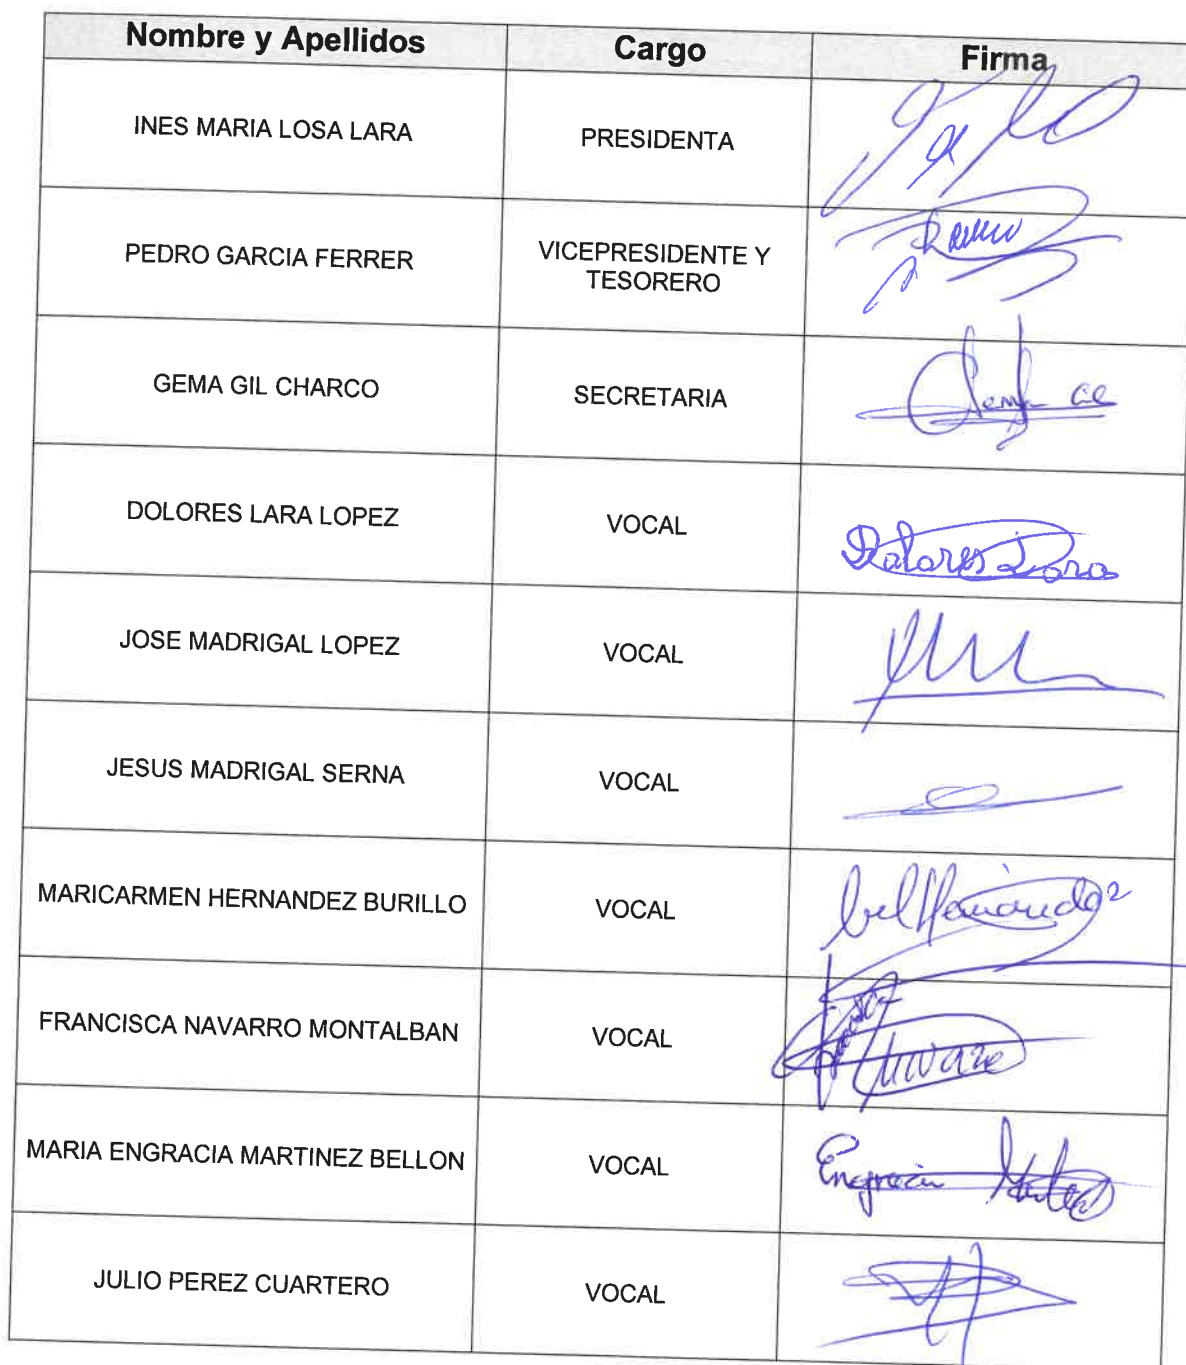 Nombre y Apellidos Cargo Firma
INES MARIA LOSA LARA PRESIDENTA
PEDRO GARCIA FERRER VICEPRESIDENTE Y
TESORERO
GEMA GIL CHARCO SECRETARIA
DOLORES LARA LOPEZ VOCAL
Dolores Lara
JOSE MADRIGAL LOPEZ VOCAL
JESUS MADRIGAL SERNA VOCAL
MARICARMEN HERNANDEZ BURILLO VOCAL
Hernández
FRANCISCA NAVARRO MONTALBAN VOCAL
MARIA ENGRACIA MARTINEZ BELLON VOCAL
Engracia
JULIO PEREZ CUARTERO VOCAL